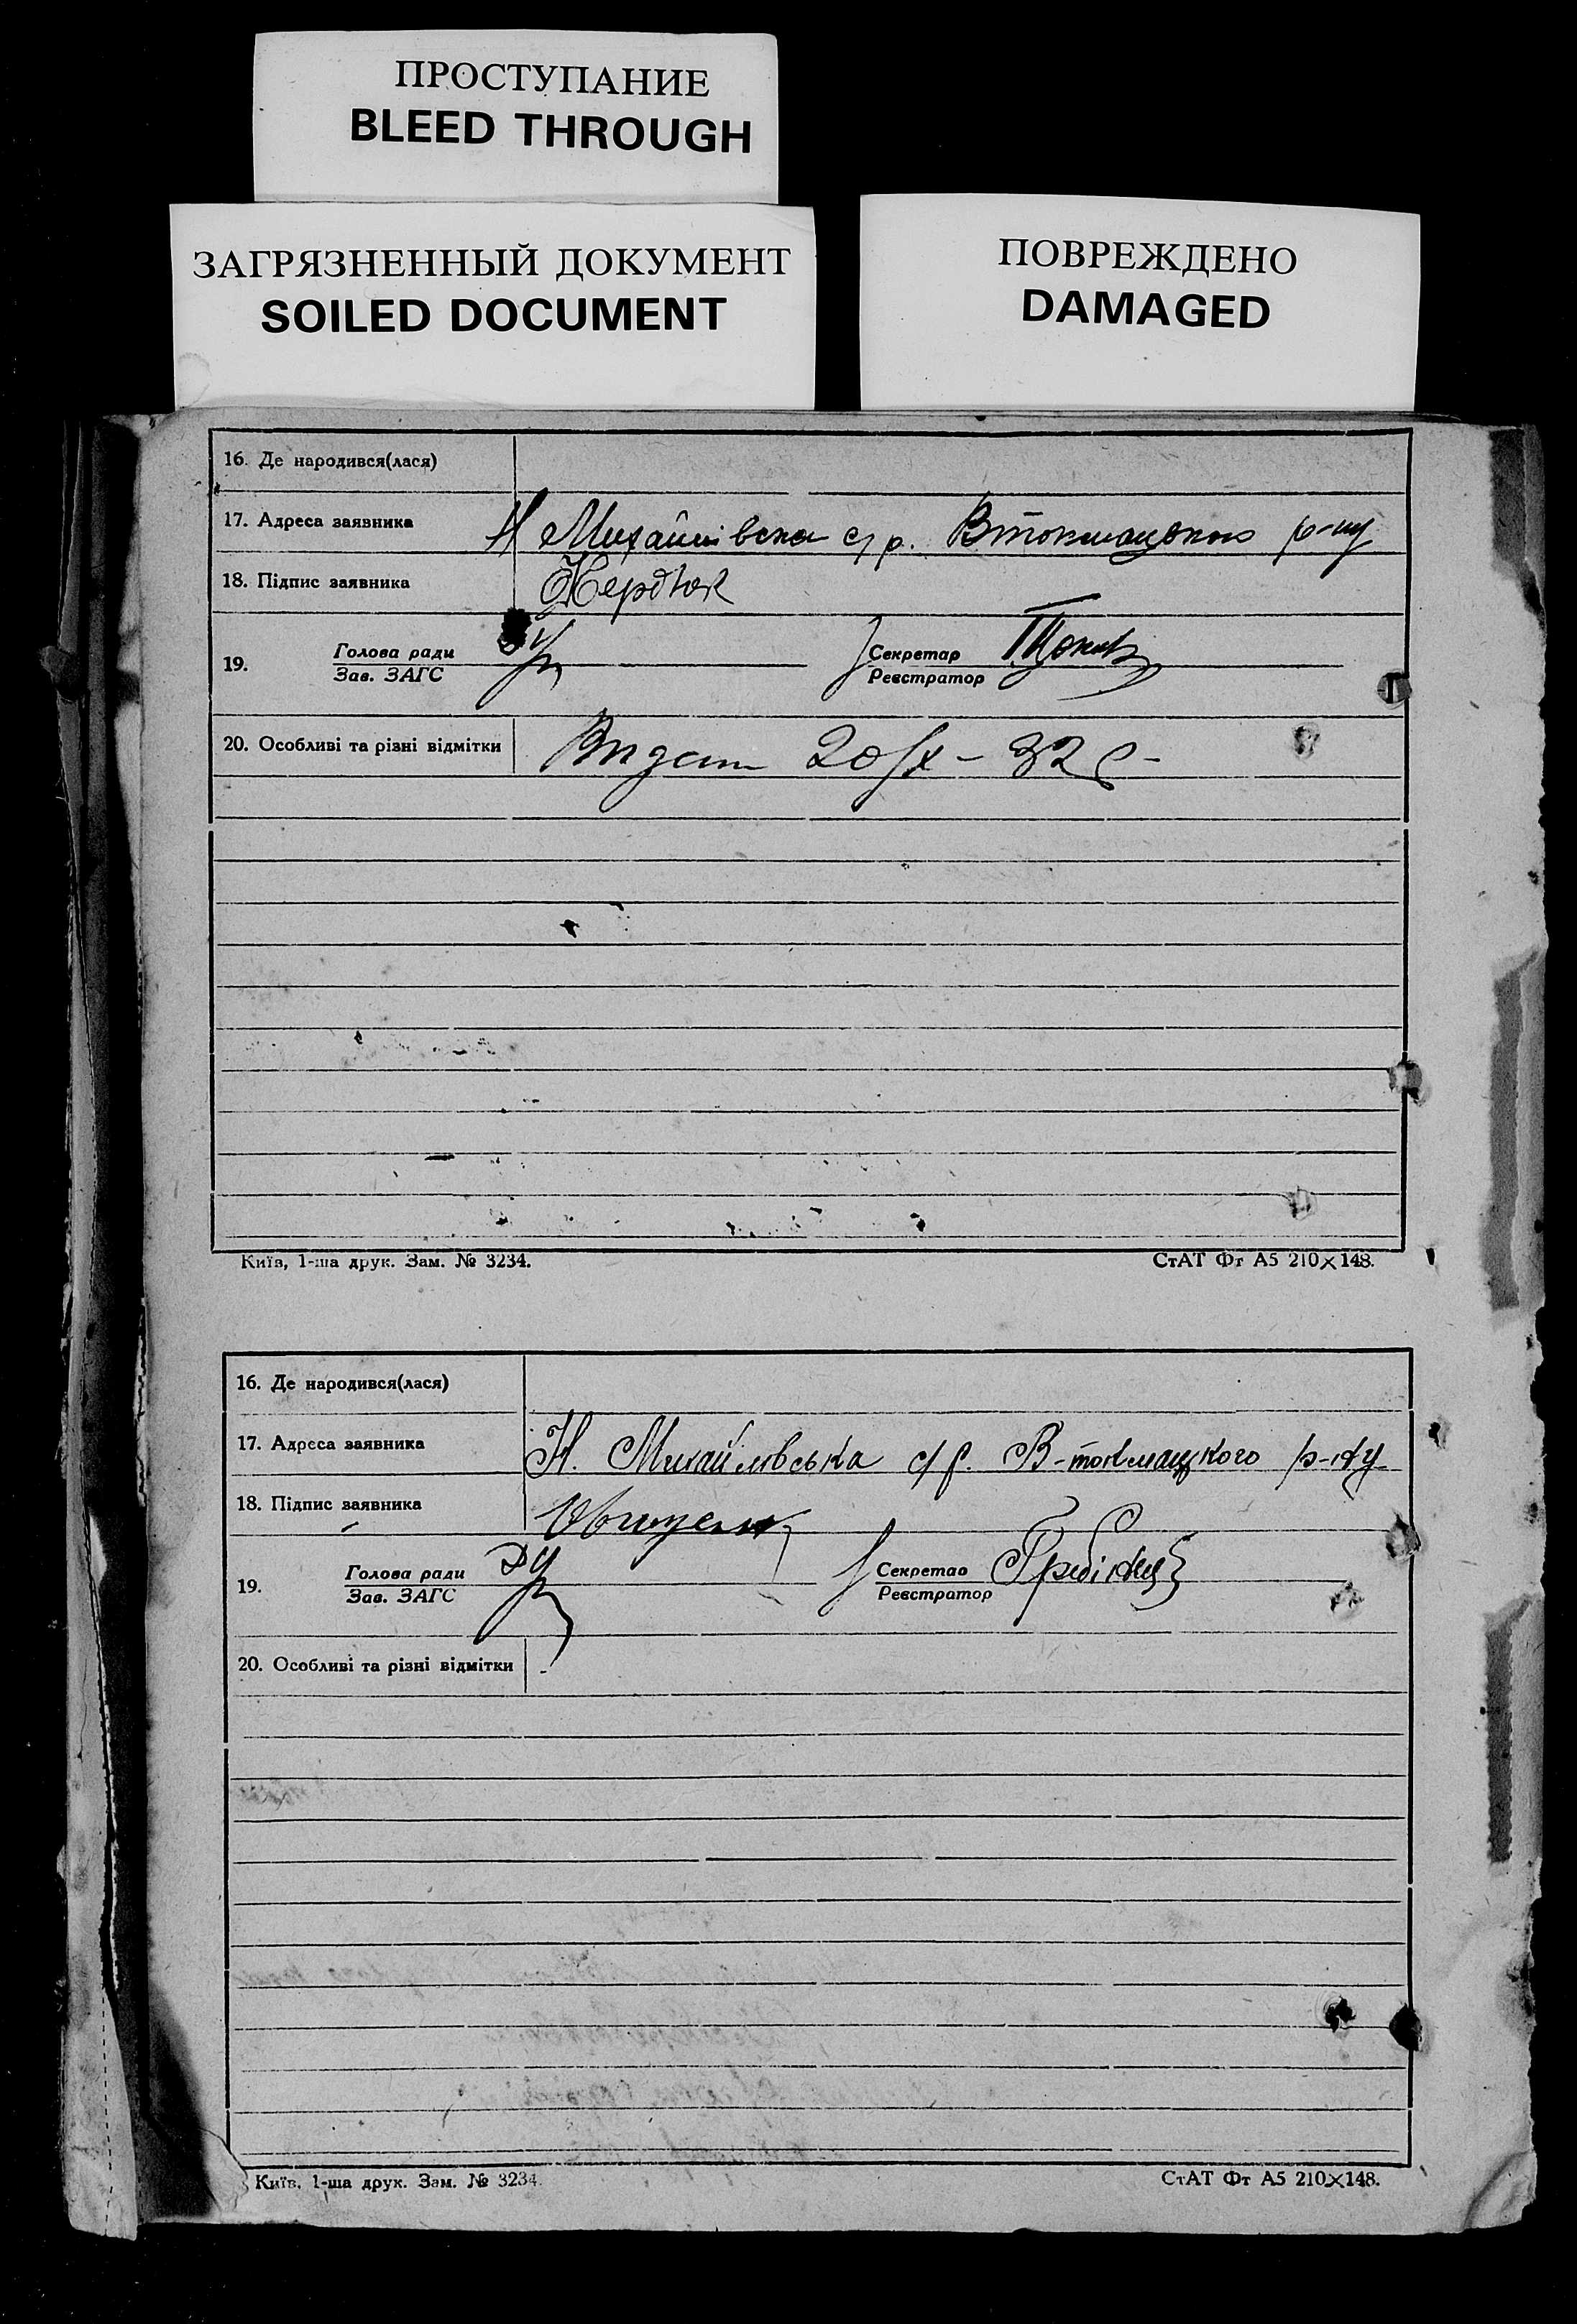 ПРОСТУПАНИЕ
BLEED THROUGH
ЗАГРЯЗНЕННЫЙ ДОКУМЕНТ
SOILED DOCUMENT
ПОВРЕЖДЕНО
DAMAGED
16. Де народився(лася)
17. Адреса заявника Н Михайлівська с/р. Втокмацького р-ну
18. Підпис заявника
19. Голова ради Секретар
Зав. ЗАГС Реєстратор
20. Особливі та різні відмітки 20/X - 32 р-
Київ, 1-ша друк. Зам. № 3234. СтАТ Фт А5 210×148.
16. Де народився(лася)
17. Адреса заявника Н. Михайлівська с/р. В-токмацького р-ну
18. Підпис заявника
19. Голова ради Секретар
Зав. ЗАГС Реєстратор
20. Особливі та різні відмітки -
Київ, 1-ша друк. Зам. № 3234. СтАТ Фт А5 210×148.